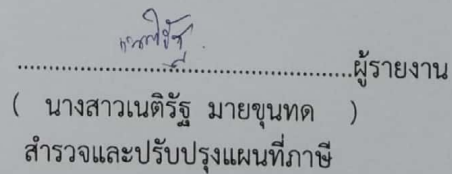 เนติรัฐ
......................................................ผู้รายงาน
( นางสาวเนติรัฐ มายขุนทด )
สำรวจและปรับปรุงแผนที่ภาษี